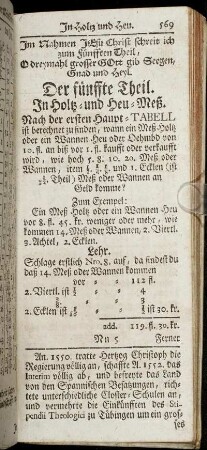 In Holtz und Heu. 569
Im Nahmen JEsu Christ schreit ich
zum Fünfften Theil,
O dreymahl grosser GOtt gib Seegen,
Gnad und Heyl.
Der fünffte Theil.
In Holtz- und Heu-Meß.
Nach der ersten Haupt-TABELL
ist berechnet zu finden, wann ein Meß-Holtz
oder ein Wannen-Heu oder Oehmbd von
10. fl. an biß vor 1. fl. kaufft oder verkaufft
wird, wie hoch 5. 8. 10. 20. Meß oder
Wannen, item und 1. Ecklen (ist
Theil) Meß oder Wannen an
Geld komme?
Zum Exempel:
Ein Meß-Holtz oder ein Wannen-Heu
vor 8. fl. 45. kr. weniger oder mehr, wie
kommen 14. Meß oder Wannen, 2. Viertl.
3. Achtel, 2. Ecklen.
Lehr.
Schlage erstlich Nro. 8. auf, da findest du
daß 14. Meß oder Wannen kommen
vor 112 fl.
2. Viertl. ist 4
3
2. Ecklen ist ist 30. kr.
add. 119. fl. 30. kr.
Nn 5 Ferner
An. 1550. tratte Hertzog Christoph die
Regierung völlig an, schaffte A. 1552. das
Interim völlig ab, und befreyte das Land
von den Spannischen Besatzungen, rich-
tete unterschiedliche Closter-Schulen an,
und vermehrte die Einkünfften des Sti-
pendii Theologici zu Tübingen um ein gros-
ses